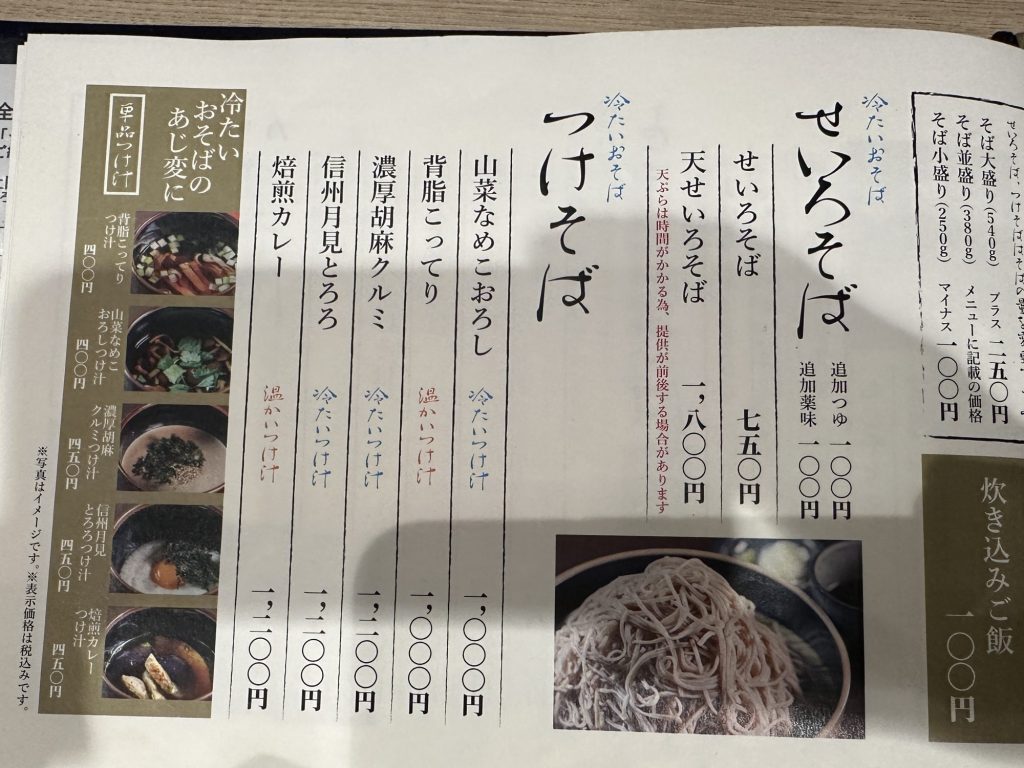 せいろそば、つけそば
そば大盛り(540g) プラス 二五〇円
そば並盛り(380g) メニューに記載の価格
そば小盛り(250g) マイナス 一〇〇円
炊き込みご飯
一〇〇円
冷たいおそば
せいろそば
追加つゆ 一〇〇円
追加薬味 一〇〇円
せいろそば 七五〇円
天せいろそば 一,八〇〇円
天ぷらは時間がかかる為、提供が前後する場合があります
冷たいおそば
つけそば
山菜なめこおろし 冷たいつけ汁 一,〇〇〇円
背脂こってり 温かいつけ汁 一,〇〇〇円
濃厚胡麻クルミ 冷たいつけ汁 一,二〇〇円
信州月見とろろ 冷たいつけ汁 一,二〇〇円
焙煎カレー 温かいつけ汁 一,二〇〇円
冷たい
おそばの
あじ変に
単品つけ汁
背脂こってり
つけ汁
四〇〇円
山菜なめこ
おろしつけ汁
四〇〇円
濃厚胡麻
クルミつけ汁
四五〇円
信州月見
とろろつけ汁
四五〇円
焙煎カレー
つけ汁
四五〇円
※写真はイメージです。※表示価格は税込みです。